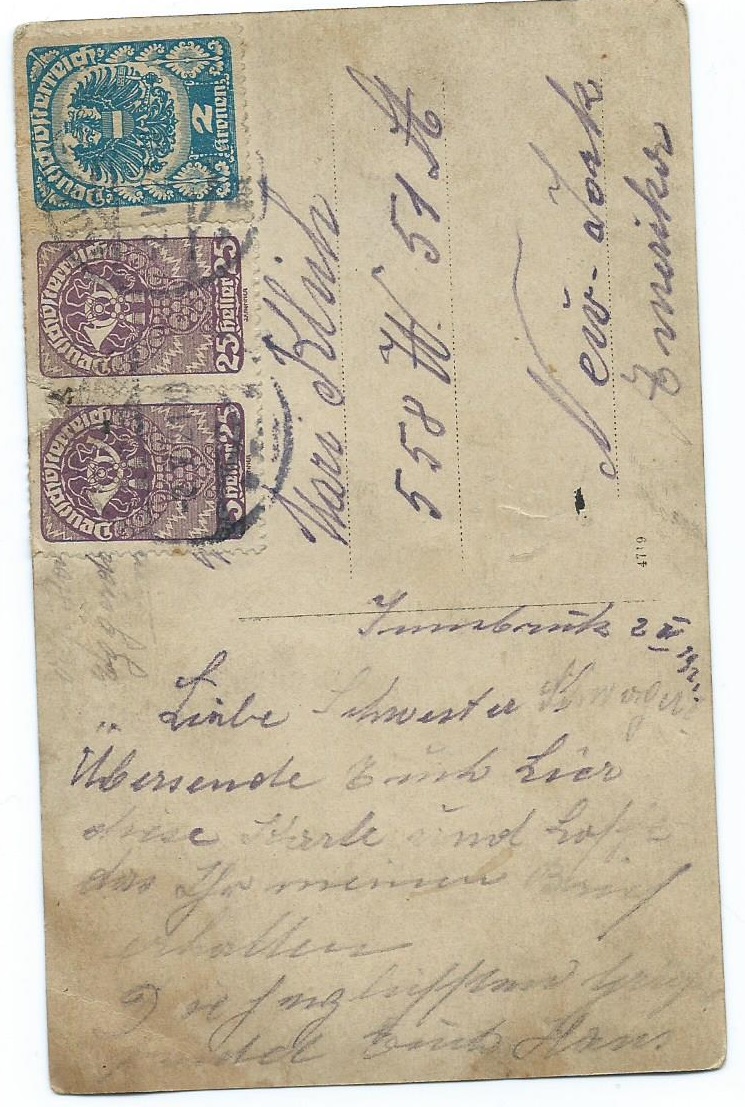 Deutschösterreich
2 Kronen
Deutschösterreich
25 Heller 25
Deutschösterreich
25 Heller 25
558 W. 51
New-York
Amerika
4719
Innsbruck 2 V 1921.
Liebe Schwester Schwager
Übersende Euch hier
diese Karte und hoffe
das Ihr meinen Brief
erhalten
Die herzlichsten Grüße
sendet Euch Hans.